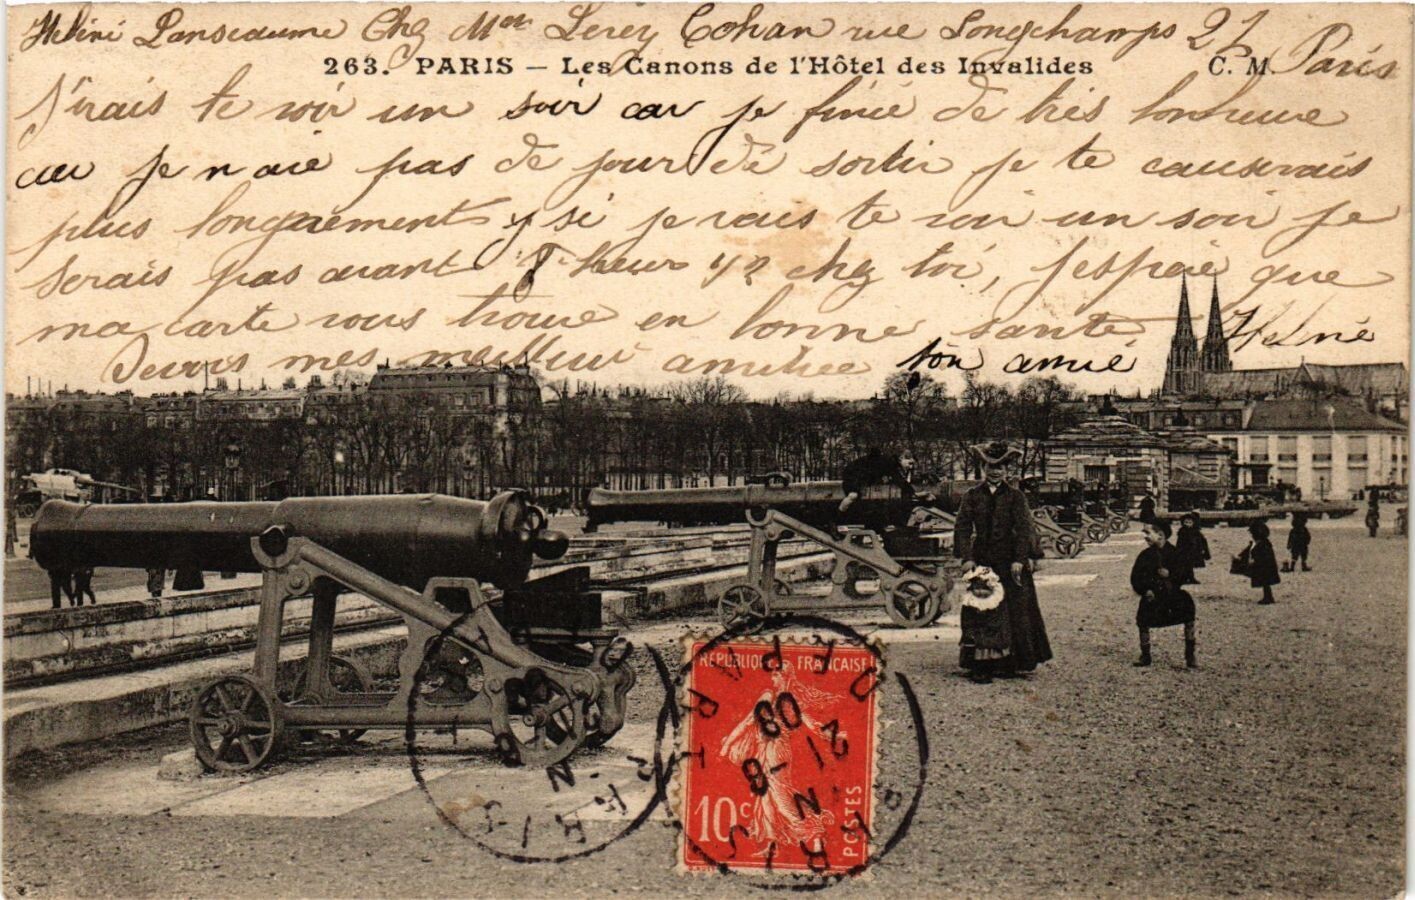 Heléne Panseaume Chez Mme Leréy Cohan rue Longchamps 27
Paris
263. PARIS – Les Canons de l'Hôtel des Invalides C. M.
J'irais te voir un soir car je finie de très bonheure
car je n aie pas de jour dé sortir je te causerais
plus longuement si je vais te voir un soir je
serais pas avant 8 heur ½ chez toi, j'espère que
ma carte vous trouve en bonne santé Heléne
Devois mes meilleur amitiée ton amie
RÉPUBLIQUE FRANÇAISE
10c
POSTES
PARIS DEPART
21 - 8
08
PARIS